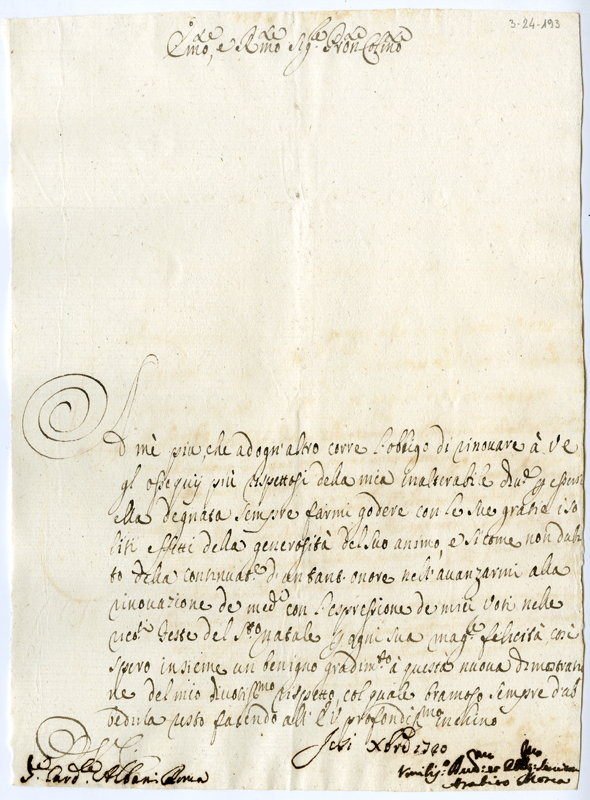 3-24-193
Emo, e Rmo Sigre Pron Colmo
Ad mè più, che ad ogn'altro corre l'obbligo di rinouare à V E
gl ossequij più rispettosi della mia inalterabile
ella degnata sempre farmi godere con le sue gratie i so
liti effetti della generosità del suo animo, e si come non dubi
to della continuat.e d'un tant. onore nell'auanzarmi alla
rinouazione de med.i con l'espressione de miei voti nelle
Feste del Sto Natale ogni sua mag.e felicità così
spero insieme un benigno gradimto à questa nuoua dimostratio
ne del mio diuotissmo rispetto, col quale bramoso sempre d'ub
bedirla resto facendo all' profondissmo inchino
Jesi Xbre 1720
Card.le Albani Roma